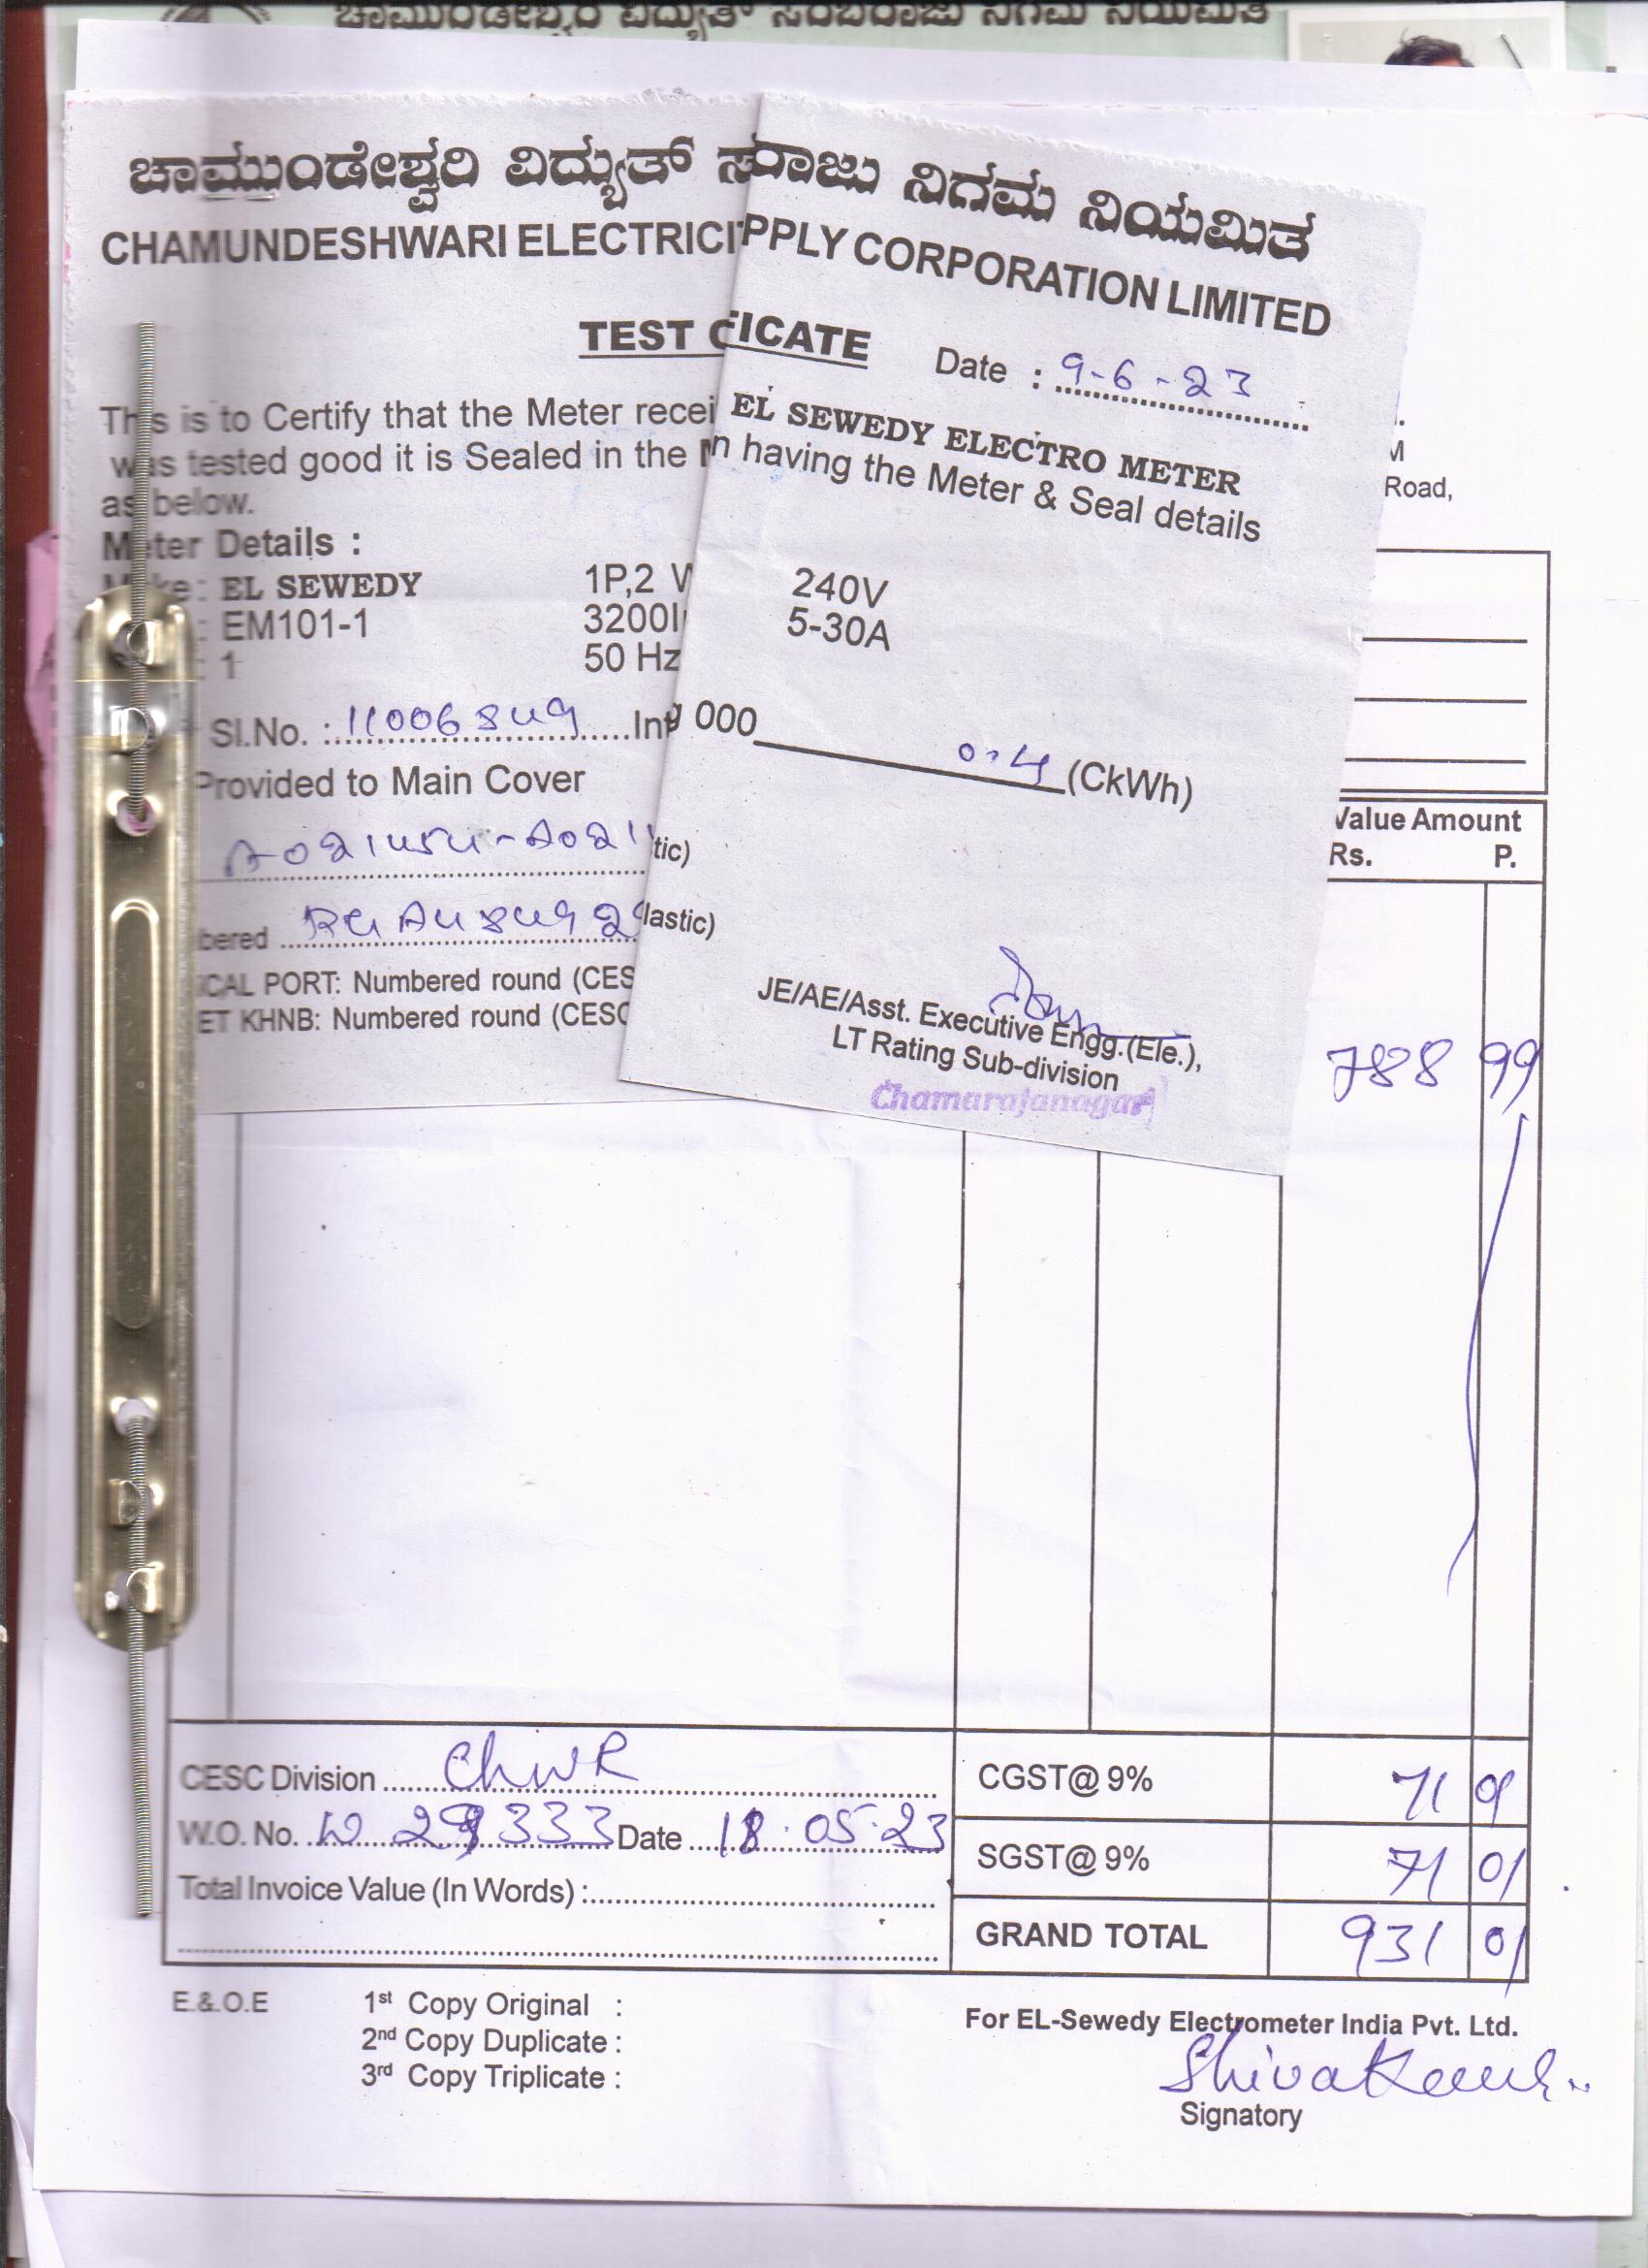 ಚಾಮುಂಡೇಶ್ವರಿ ವಿದ್ಯುತ್ ಸರಬರಾಜು ನಿಗಮ ನಿಯಮಿತ
ಚಾಮುಂಡೇಶ್ವರಿ ವಿದ್ಯುತ್ ಸರಾಜು ನಿಗಮ ನಿಯಮಿತ
CHAMUNDESHWARI ELECTRICI PPLY CORPORATION LIMITED
TEST C FICATE
Date : 9-6-23
This is to Certify that the Meter recei EL SEWEDY ELECTRO METER
was tested good it is Sealed in the n having the Meter & Seal details
as below.
Road,
Meter Details :
Make: EL SEWEDY 1P,2 W 240V
: EM101-1 3200I 5-30A
: 1 50 Hz
Sl.No. : 11006849 Int g 000 0.4 (CkWh)
Provided to Main Cover
Value Amount
Rs. P.
tic)
bered lastic)
ICAL PORT: Numbered round (CES
ET KHNB: Numbered round (CESC
JE/AE/Asst. Executive Engg.(Ele.),
LT Rating Sub-division
Chamarajanagar
788 99
CESC Division ChNR CGST@ 9% 71 01
W.O. No. Date 18.05.23 SGST@ 9% 71 01
Total Invoice Value (In Words) :
GRAND TOTAL 931 01
E.&.O.E 1st Copy Original :
2nd Copy Duplicate :
3rd Copy Triplicate :
For EL-Sewedy Electrometer India Pvt. Ltd.
Signatory